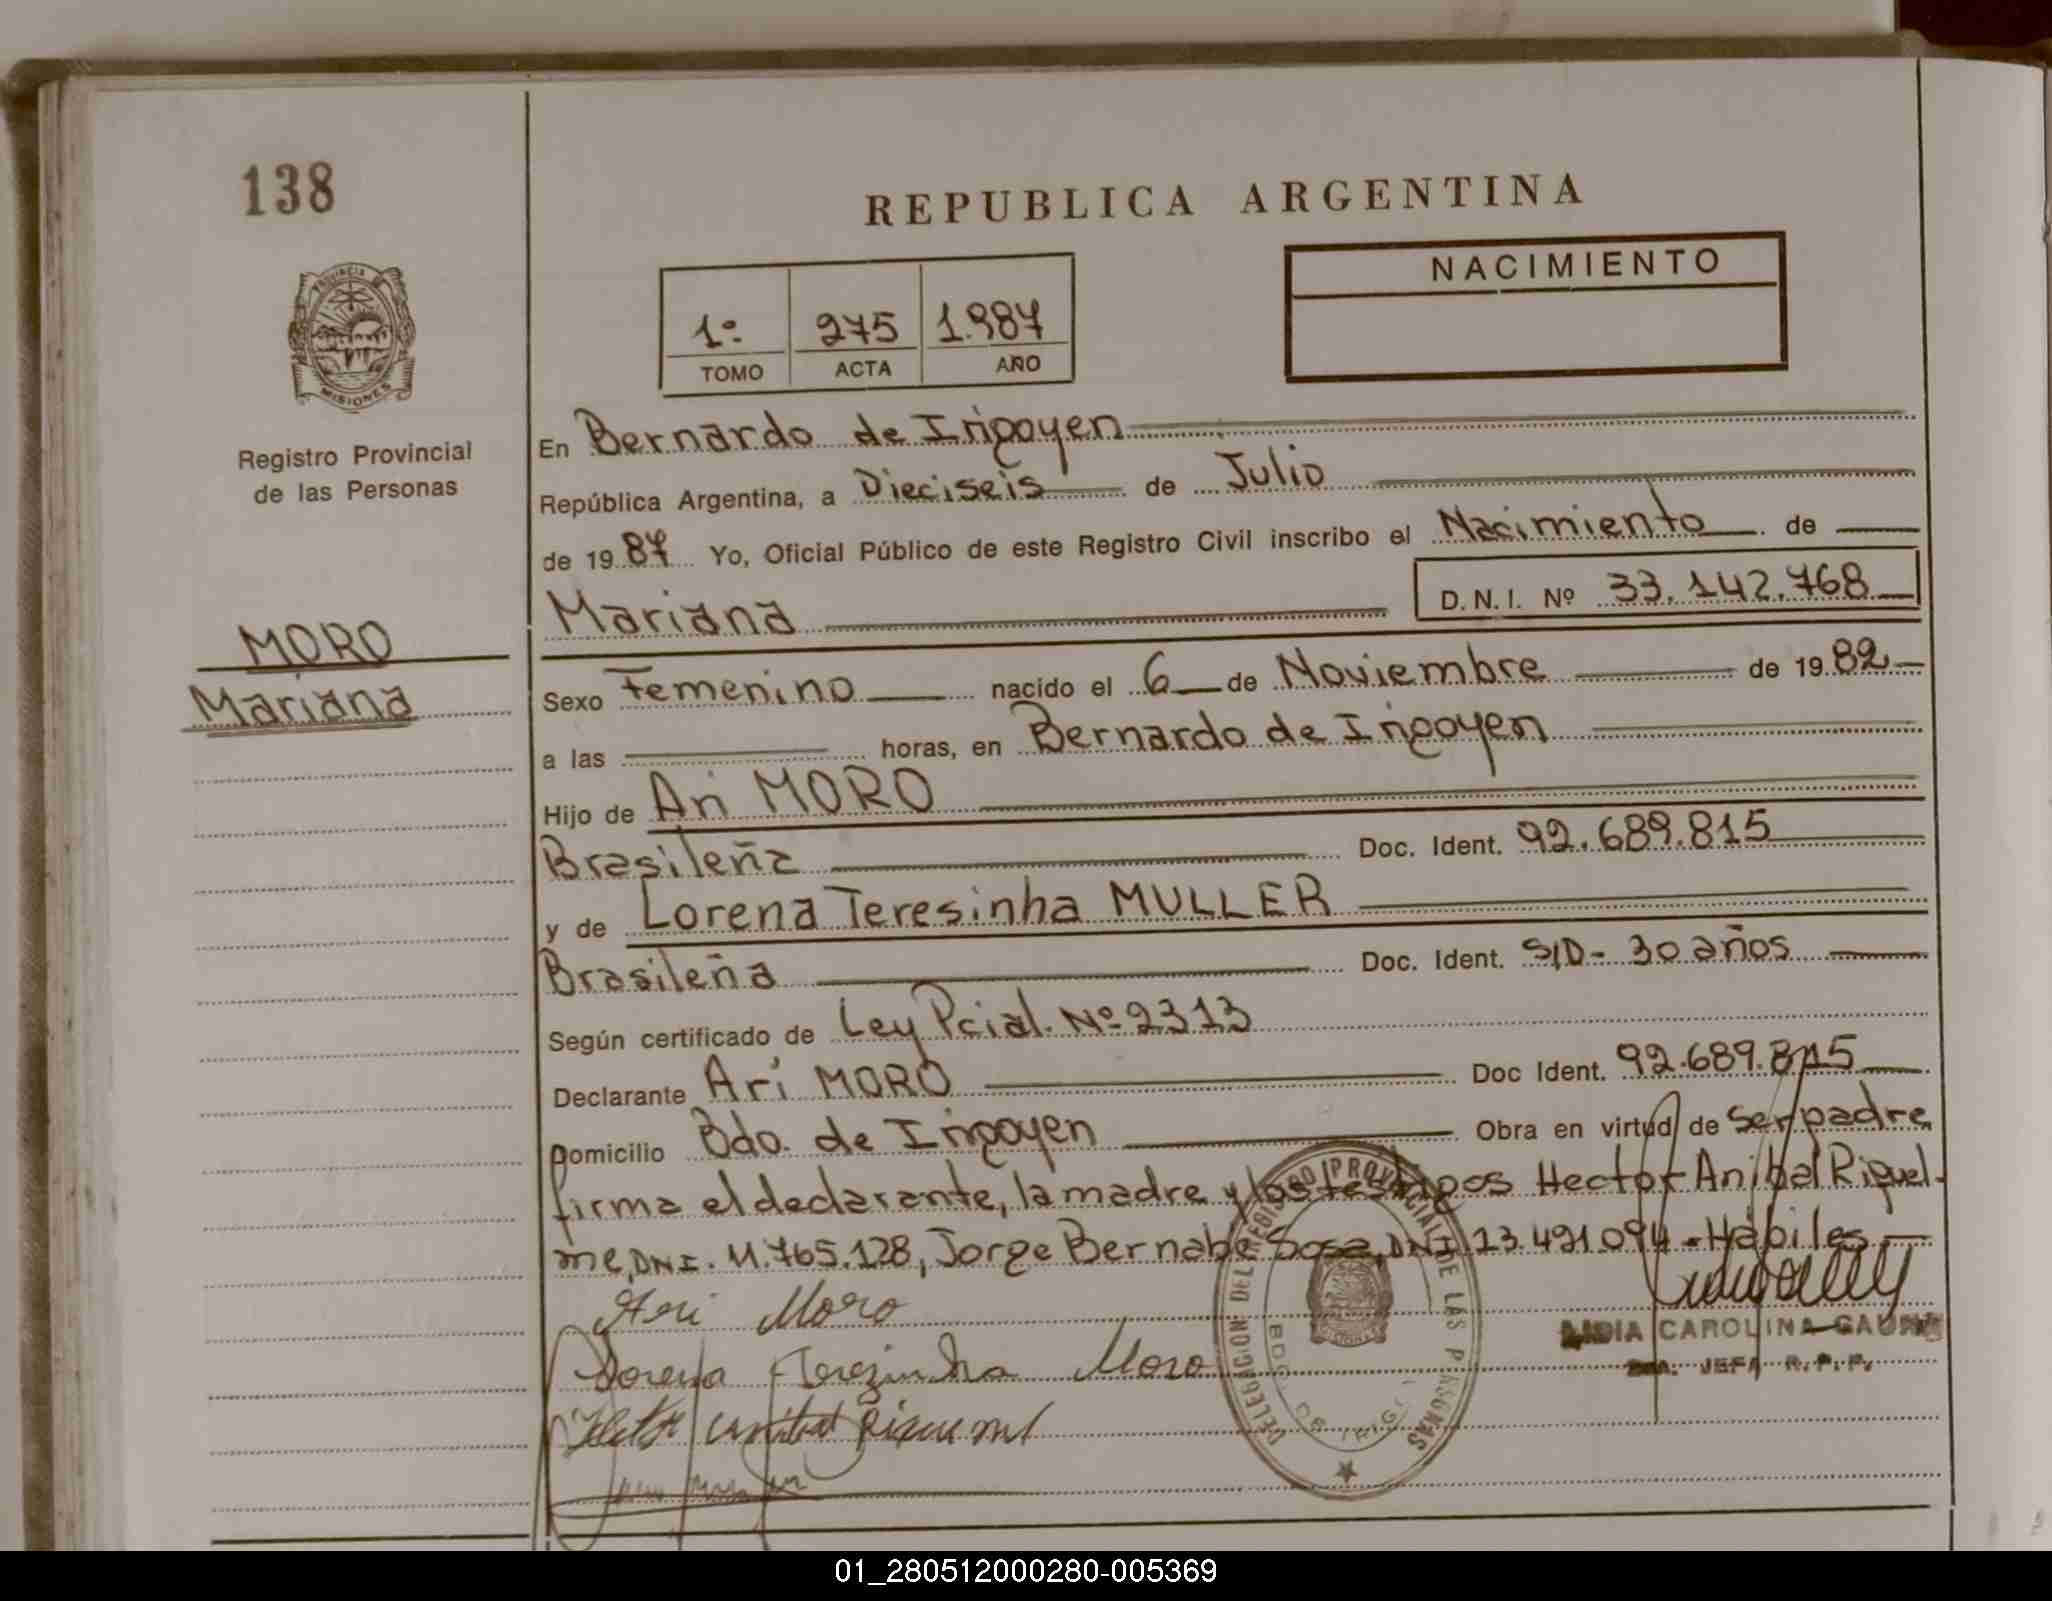 138
REPUBLICA ARGENTINA
PROVINCIA DE
MISIONES
Registro Provincial
de las Personas
NACIMIENTO
1º 275 1.987
TOMO ACTA AÑO
En Bernardo de Irigoyen
República Argentina, a Dieciseis de Julio
de 19 87 Yo, Oficial Público de este Registro Civil inscribo el Nacimiento de
Mariana D.N.I. Nº 33.142.768
MORO
Mariana
Sexo Femenino nacido el 6 de Noviembre de 19 82
a las horas, en Bernardo de Irigoyen
Hijo de Ari MORO
Brasileña Doc. Ident. 92.689.815
y de Lorena Teresinha MULLER
Brasileña Doc. Ident. S/D- 30 años
Según certificado de Ley Pcial. Nº 2313
Declarante Ari MORO Doc Ident. 92.689.815
Domicilio Bdo. de Irigoyen Obra en virtud de ser padre
firma el declarante, la madre y los testigos Hector Anibal Riquel-
me, DNI. 11.765.128, Jorge Bernabe Sosa, DNI 13.491.094 - Hábiles
Ari Moro
Lorena Terezinha Moro
Hector Anibal Riquelme
DELEGACION DEL REGISTRO PROVINCIAL DE LAS PERSONAS
BDO. DE IRIGOYEN
LIDIA CAROLINA
JEFA R.P.P.
01_280512000280-005369